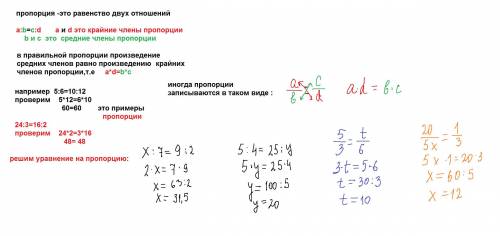 пропорция -это равенство двух отношений
a:b=c:d а и d это крайние члены пропорции
b и c это средние члены пропорции
в правильной пропорции произведение
средних членов равно произведению крайних
членов пропорции,т.е a*d=b*c
иногда пропорции
записываются в таком виде :
a/b c/d ad = b·c
например 5:6=10:12
проверим 5*12=6*10
60=60 это примеры
пропорции
24:3=16:2
проверим 24*2=3*16
48= 48
решим уравнение на пропорцию:
x:7=9:2
2·x=7·9
x=63:2
x=31,5
5:4=25:y
5·y=25·4
y=100:5
y=20
5/3=t/6
3·t=5·6
t=30:3
t=10
20/5x=1/3
5x·1=20·3
x=60:5
x=12